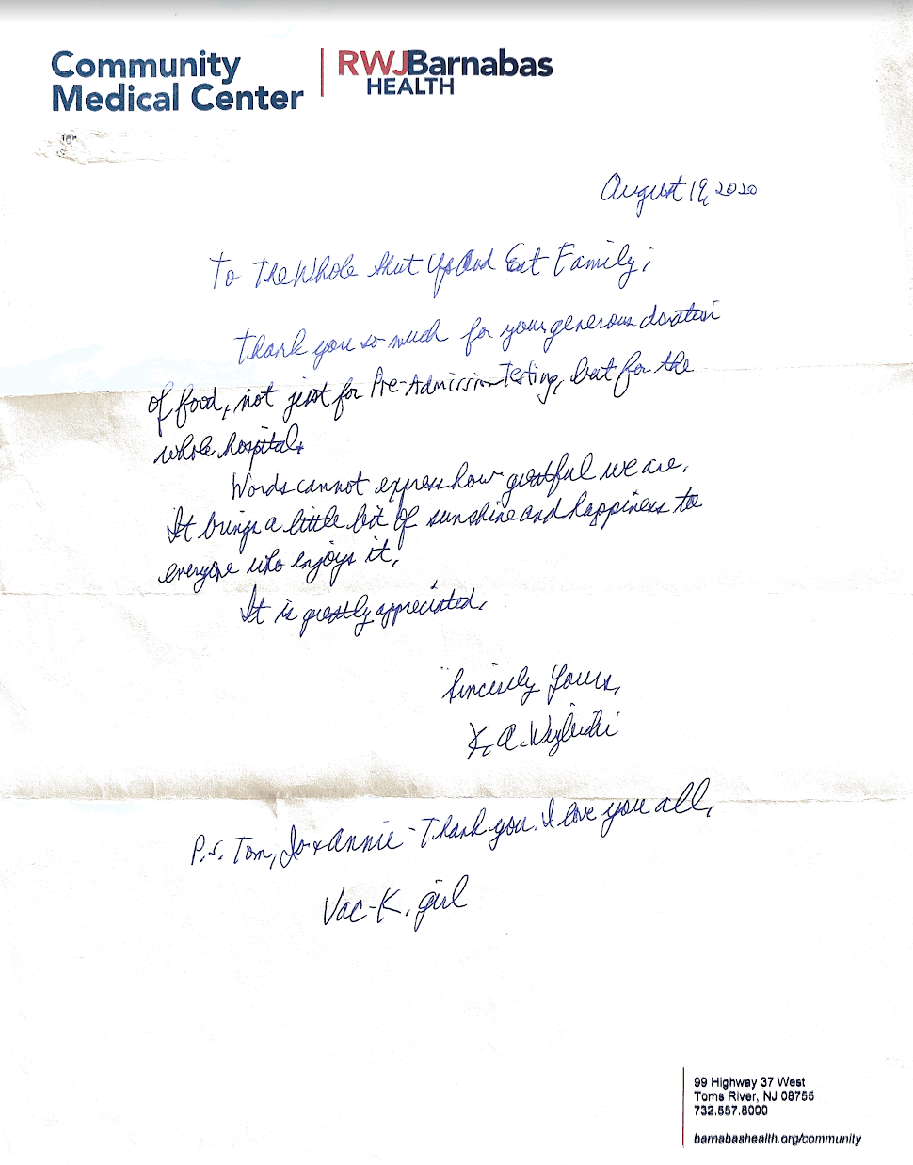 Community
Medical Center
RWJBarnabas
HEALTH
August 19, 2020
To The Whole Shut Up And Eat Family;
Thank you so much for your generous donation
of food, not just for Pre-Admission Testing, but for the
whole hospital.
Words cannot express how grateful we are.
It brings a little bit of sunshine and happiness to
everyone who enjoys it.
It is greatly appreciated.
Sincerely Yours,
K. A.
P.S. Tom, Jo & Annie - Thank you. I love you all,
Vac-K. girl
99 Highway 37 West
Toms River, NJ 08755
732.557.8000
barnabashealth.org/community